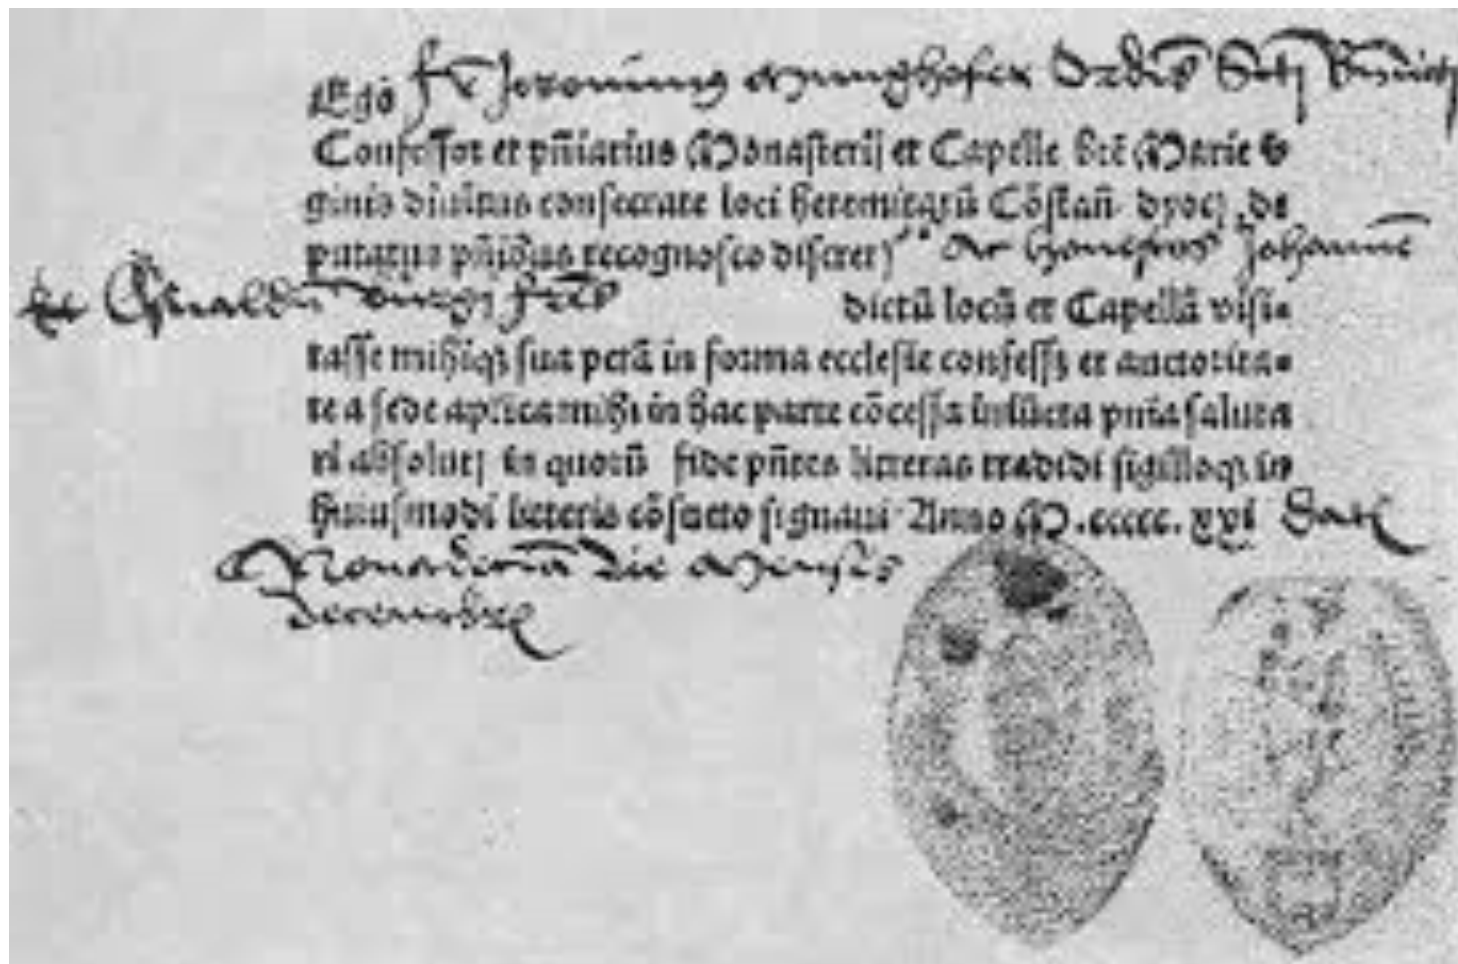 Ego fr Jeronimus Munghofer Ordis Scti Bndicti
Confessor et pñiarius Monasterij et Capelle btē Marie v
ginis diuinitus consecrate loci heremitarū Cōstañ. dyocȝ. de
putatus pñidus recognosco discret) ac honestos Johannē
et Oswaldū frēs dictū locū et Capellā visi
tasse mihiqȝ sua pctā in forma ecclesie confessȝ et auctorita-
te a sede aplica mihi in hac parte cōcessa iniūcta pnia saluta
ri absolut) in quorū fide pñtes litteras tradidi sigilloqȝ in
huiusmodi litteris cōsueto signaui. Anno M.ccccc.xxi Dat
Nonadecima die Mensis
Decembr